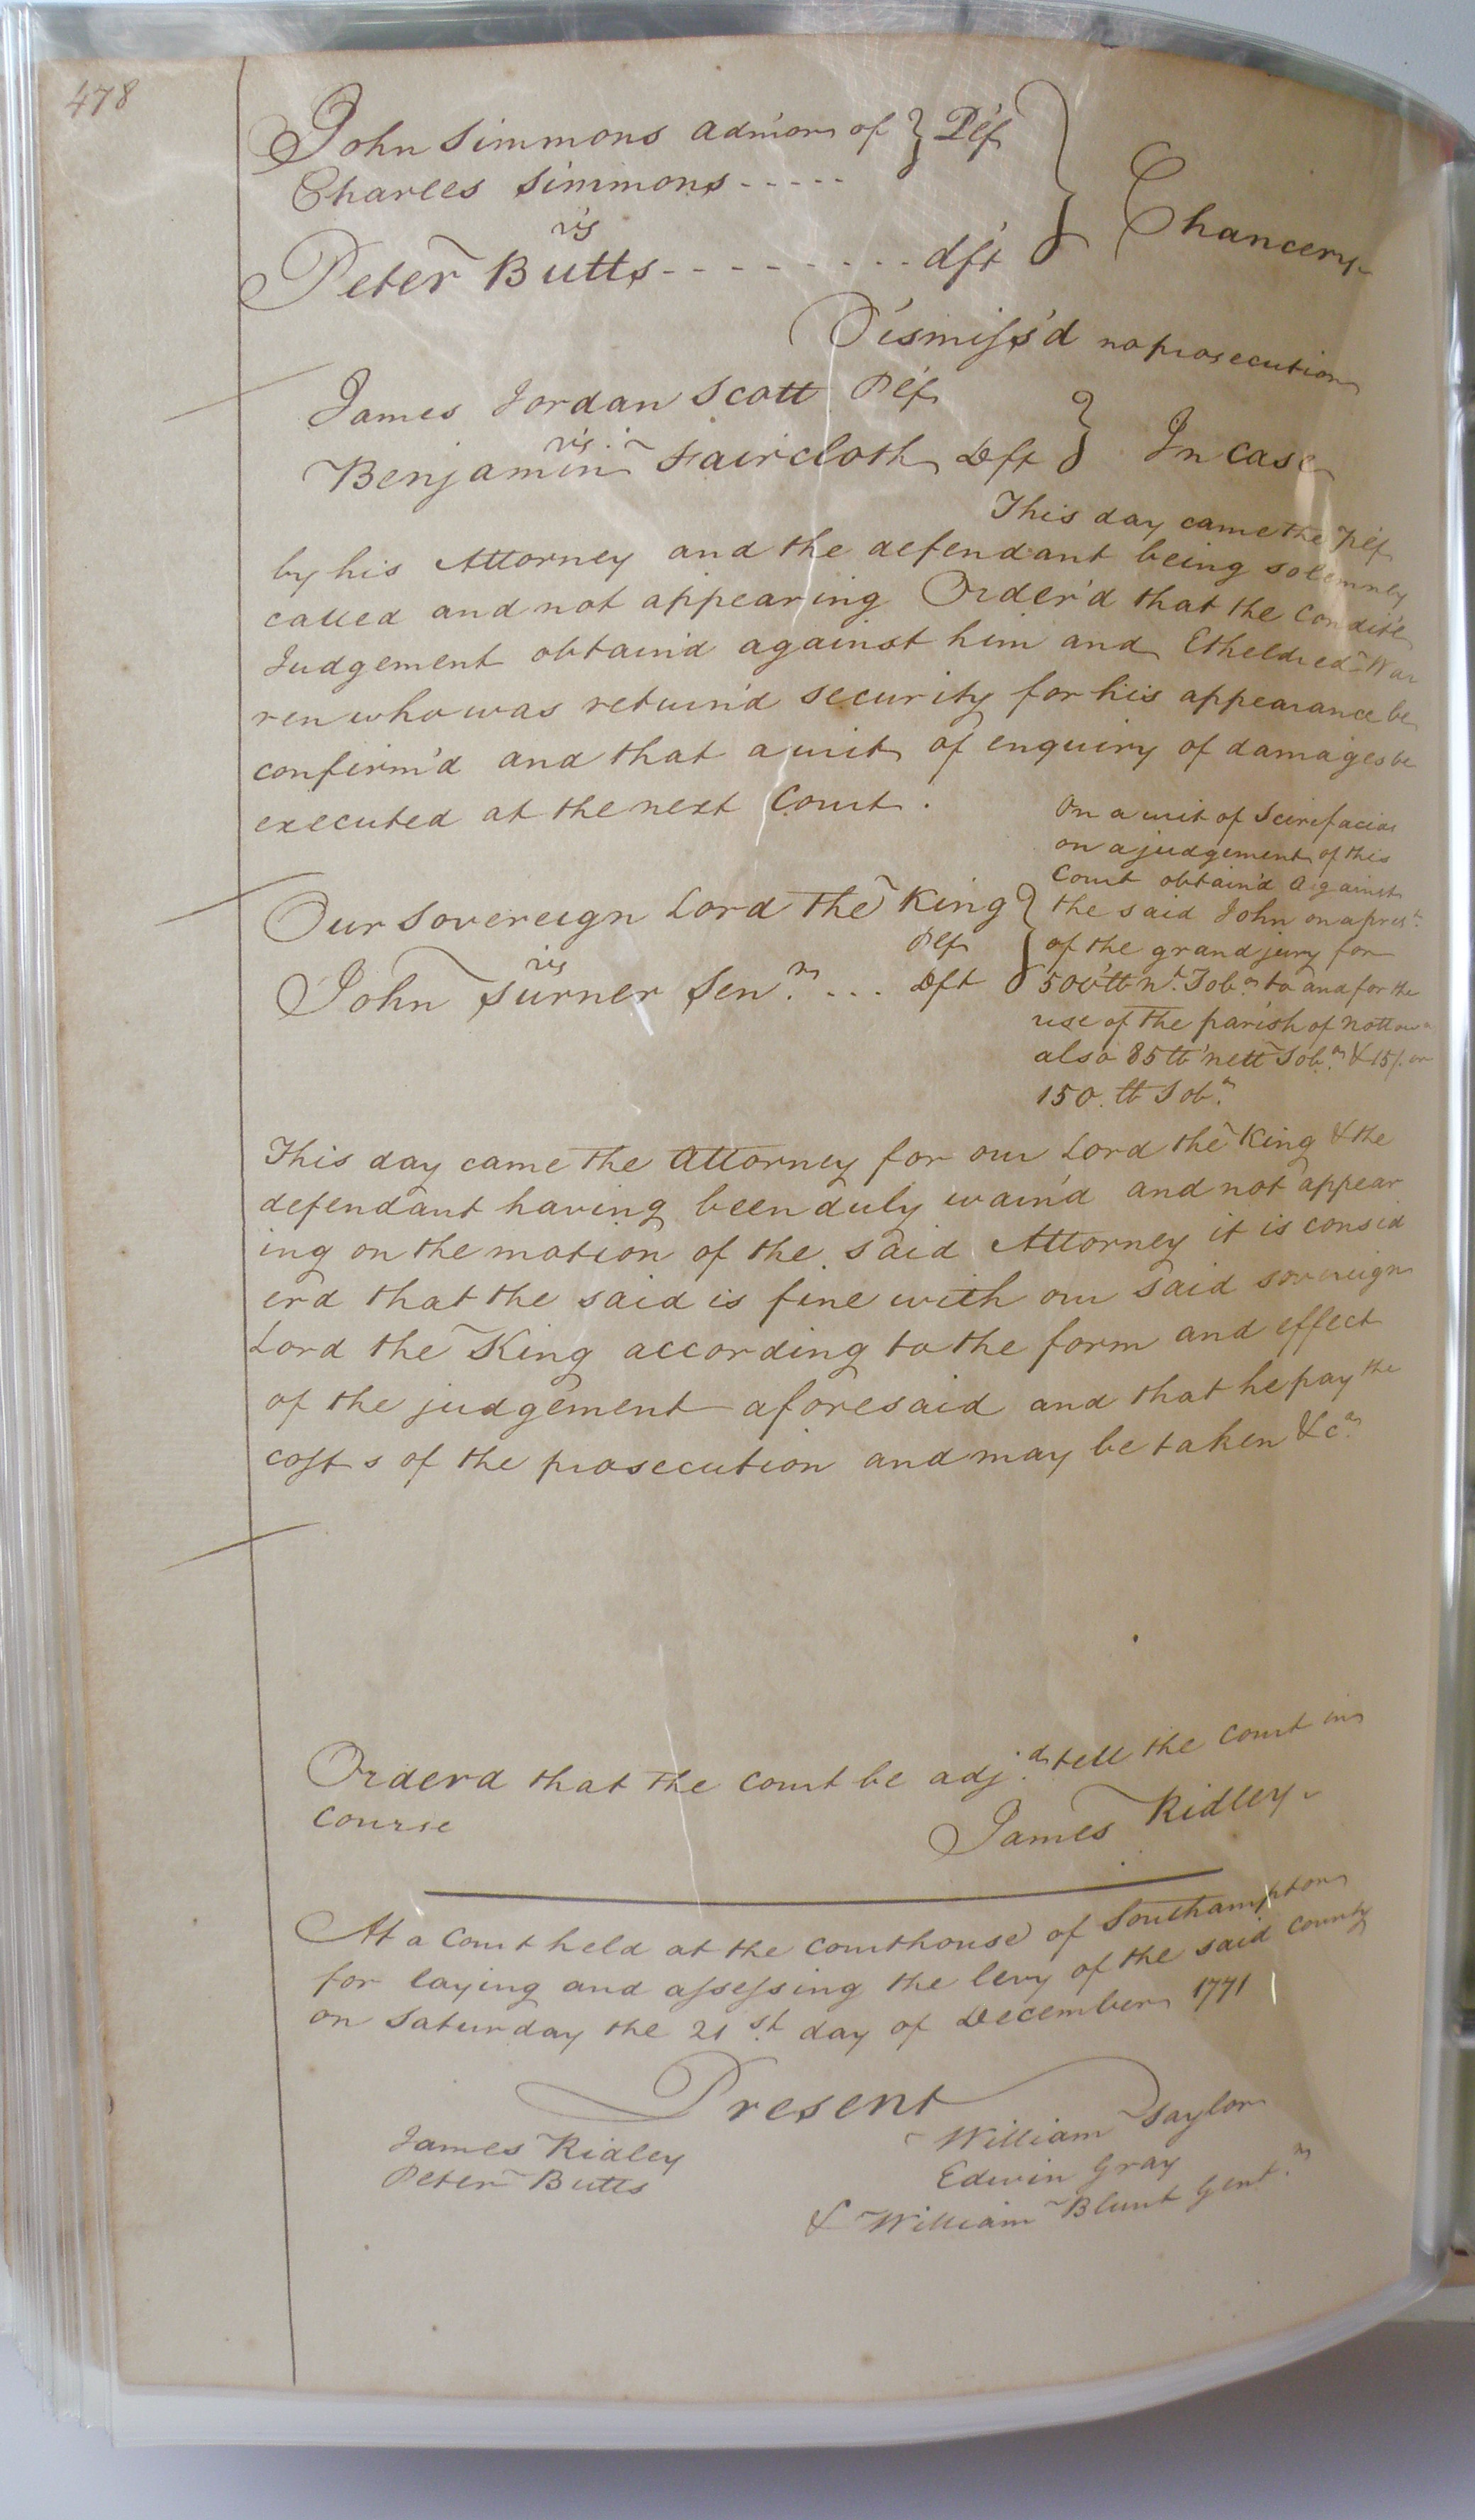 478
John Simmons adm'or of } Pl'f
Charles Simmons-----
vs
Peter Butts--------- dft } Chancery
Dismiss'd no prosecution
James Jordan Scott Pl'f
vs
Benjamin Faircloth Dft } In Case
This day came the Pl'f
by his Attorney and the defendant being solemnly
called and not appearing Order'd that the Condit'l
Judgement obtain'd against him and Etheldred War
ren who was return'd security for his appearance be
confirm'd and that a writ of enquiry of damages be
executed at the next Court.
On a writ of Scirefacias
on a judgement of this
Court obtain'd against
Our Sovereign Lord the King } the said John on a pres.t
Plf of the grand jury for
vs
John Turner Sen.r ... Dft 500 lb n.t Tob.o to and for the
use of the parish of Nottoway
also 85 lb nett Tob.o & 15/. or
150. lb Tob.o
This day came the Attorney for our Lord the King & the
defendant having been duly warn'd and not appear
ing on the motion of the said Attorney it is consid
erd that the said is fine with our said sovereign
Lord the King according to the form and effect
of the judgement aforesaid and that he pay the
costs of the prosecution and may be taken &c.a
Orderd that the court be adj.d till the Court in
Course
James Ridley
At a Court held at the courthouse of Southampton
for laying and assessing the levy of the said County
on Saturday the 21st day of December 1771
Present
James Ridley William Taylor
Peter Butts Edwin Gray
& William Blunt Gent.n